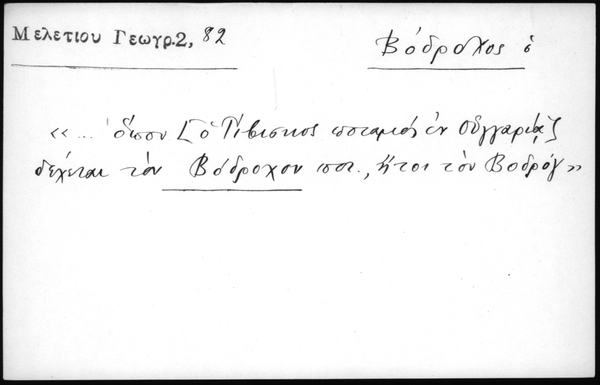 Μελετίου Γεωγρ.2, 82
Βόδροχος ὁ
«... ὅπου [ὁ Τίβισκος ποταμός ἐν Οὑγγαρίᾳ]
δέχεται τὸν Βόδροχον ποτ., ἤτοι τὸν Βοδρόγ»